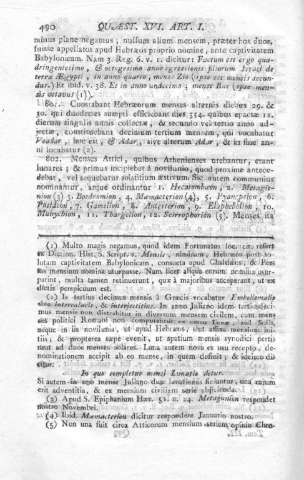 490 QUÆST. XVI. ART. I.
minus plane negamus, nullum alium mensem, præter hos duos,
fuisse appellatos apud Hebræos proprio nomine, ante captivitatem
Babylonicam. Nam 3. Reg. 6. v. 1. dicitur: Factum est ergo qua-
dringentesimo, & octogesimo anno egressionis filiorum Israel de
terra Ægypti, in anno quarto, mense Zio (ipse est mensis secun-
dus.) Et ibid. v. 38. Et in anno undecimo, mense Bul (ipse men-
sis octavus)
801. Constabant Hebræorum menses alternis diebus 29. &
30. qui duodecies sumpti efficiebant dies 354. quibus epactæ 11.
dierum singulis annis collectæ, & secundo vel tertio anno ad-
jectæ, constituebant decimum tertium mensem, qui vocabatur
Veadar, hoc est, & Adar, sive alterum Adar, & ita fiunt an-
ni
802. Menses Attici, quibus Athenienses utebantur, erant
lunares; & primus incipiebat a novilunio, quod proxime antece-
debat, vel sequebatur solstitium æstivum. Sic autem communiter
nominantur, atque ordinantur 1. Hecatombæon, 2. Metagit-
nion (2) 3. Boedromion, 4. Mæmacterion (4), 5. Pyanepsion, 6.
7. Gamelion, 8. Antesterion, 9. Elaphebolion, 10.
Munychion, 11. Thargelion, 12. Scirrophorion (5). Menses ita
(1) Multo magis negamus, quod idem Fortunatus
Diction. Hist. S. Script. v. Mensis, nimirum, Hebræos post so-
lutam captivitatem Babylonicam, consueta apud Chaldæos, & Per-
sas mensium nomina usurpasse. Nam licet aliqua eorum nomina usur-
parint, multa tamen retinuerunt, quæ a majoribus acceperant, ut ex
dictis perspicuum est.
(2) Is tertius decimus mensis a Græcis vocabatur Embolimæus
sive Intercalaris, & interjectitius. In anno Juliano idem tertiusdeci-
mus mensis non distrahitur in diversum mensem civilem, cum mens
politici Romani non componantur ex Lunæ, sed Solis,
neque in iis novilunia, ut apud Hebræos, sint initia mensium ini-
tiis, & propterea sæpe evenit, ut spatium mensis synodici pertineat
ad duos menses solares. Luna autem non ex usu recepto, de-
nominationem accipit ab eo mense, in quem definit, & ideirco dici-
tur:
In quo completur mensi Lunatio detur.
Si autem in uno mense Juliano duæ lunationes finiuntur, una earum
erit adventitia, & ex mensium civilium serie abjicienda.
(3) Apud S. Epiphanium Hær. 51. n. 24. Metagitnion respondet
nostro Novembri.
(4) Ibid. Mæmacterion dicitur respondere Januario nostro.
(5) Non una fuit circa Atticorum mensium seriem opinio Chro-